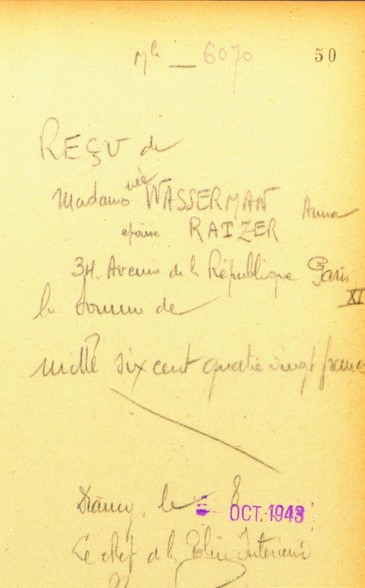 Mle — 6070 50
REÇU de
Madame née WASSERMAN Anna
épouse RAIZER
34. Avenue de la République Paris
XI
la somme de
mille six cent quatre vingt francs
Drancy, le 8 OCT. 1943
Le chef de la Police Intérieure